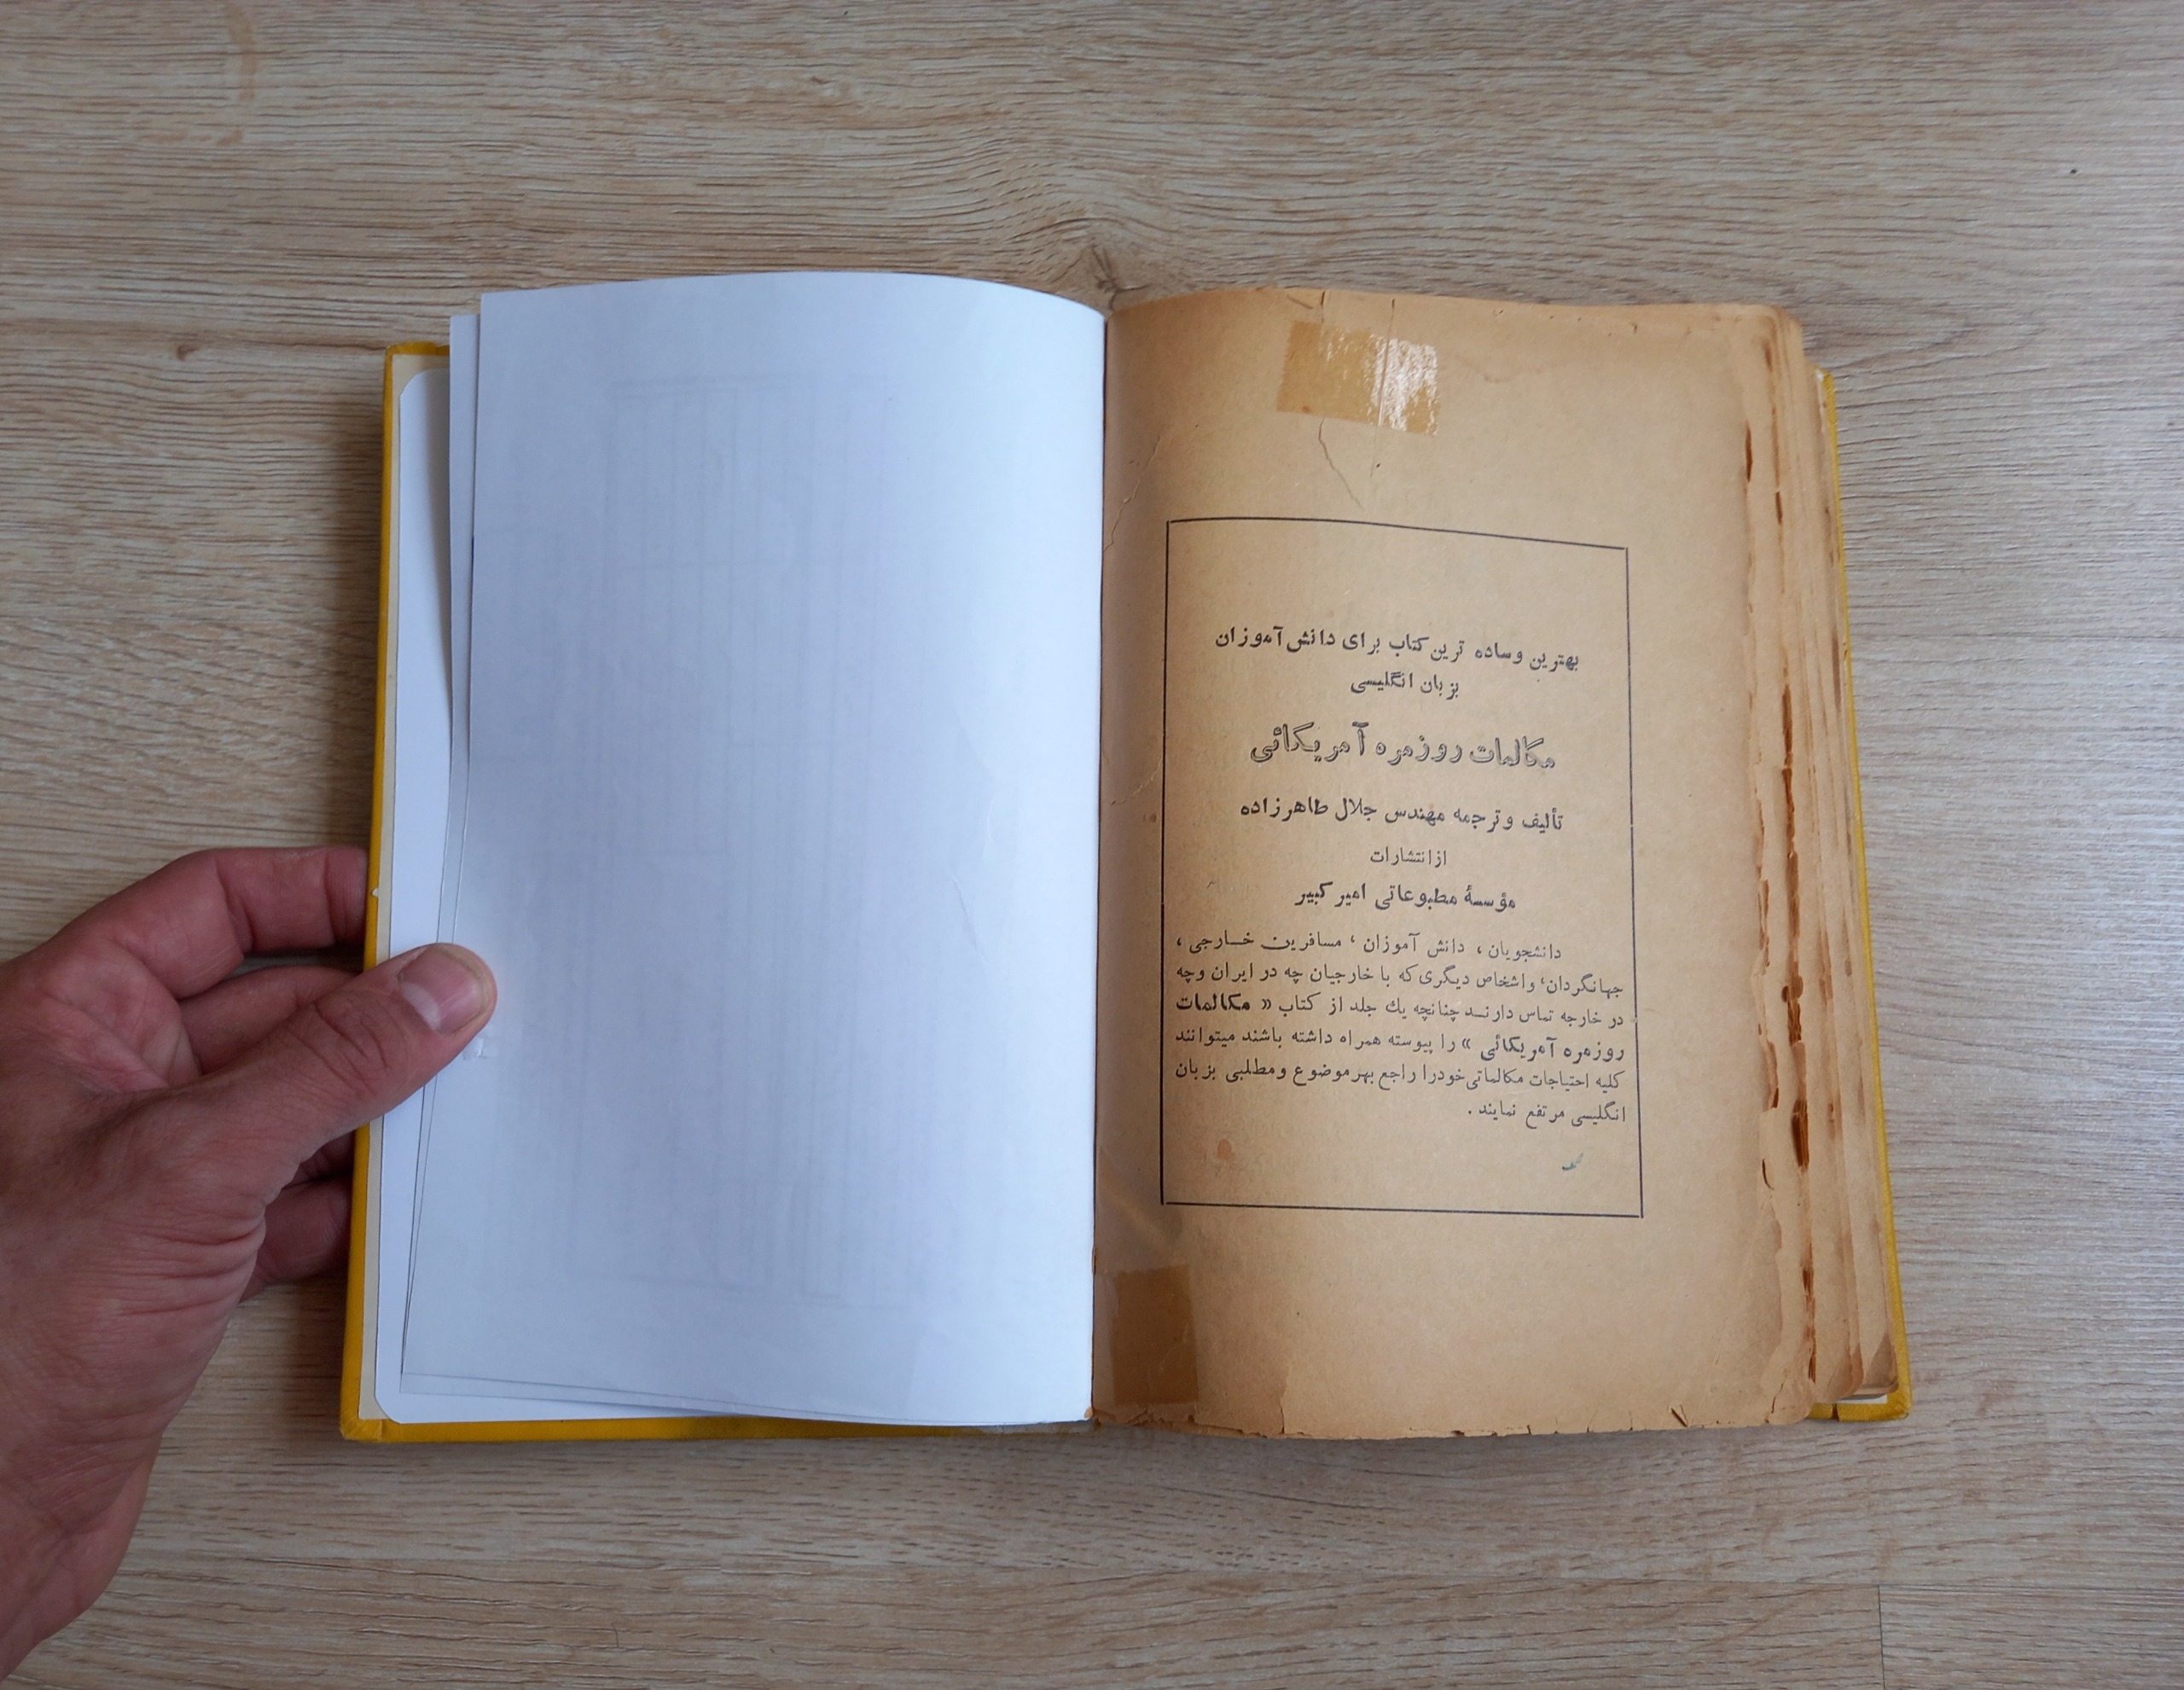 بهترین و ساده ترین کتاب برای دانش آموزان
بزبان انگلیسی
مکالمات روزمره آمریکائی
تألیف و ترجمه مهندس جلال طاهرزاده
از انتشارات
مؤسسهٔ مطبوعاتی امیر کبیر
دانشجویان ، دانش آموزان ، مسافرین خارجی ،
جهانگردان، و اشخاص دیگری که با خارجیان چه در ایران و چه
در خارجه تماس دارند چنانچه یك جلد از کتاب « مکالمات
روزمره آمریکائی » را پیوسته همراه داشته باشند میتوانند
کلیه احتیاجات مکالماتی خودرا راجع بهر موضوع و مطلبی بزبان
انگلیسی مرتفع نمایند .